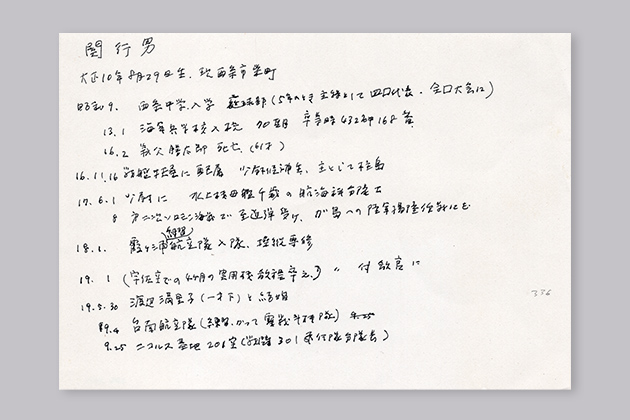 関行男
大正10年8月29日生、現西条市栄町
昭和9. 西条中学入学 庭球部(5年のとき主将として四国代表・全国大会に)
13.1 海軍兵学校入校 70期 卒業時432 168番
16.2 義父勝太郎死亡 (61才)
16.11.16 戦艦扶桑に配属 少尉候補生、主として柱島
17.6.1 少尉に 水上機母艦千歳の航海 士
8 第二次ソロモン海戦で至近弾受け、ガ島への陸軍揚陸任務にも
18.1. 霞ヶ浦練習航空隊入隊、操縦専修
19.1 (宇佐空での4ケ月の実用機教程卒え) 〃 付教官に
19.5.30 渡辺満里子(一才下)と結婚
台南航空隊(練習、かつて零戦斗機隊) 9.25
9.25 ニコルス基地 201空( 301飛行隊分隊長)
336